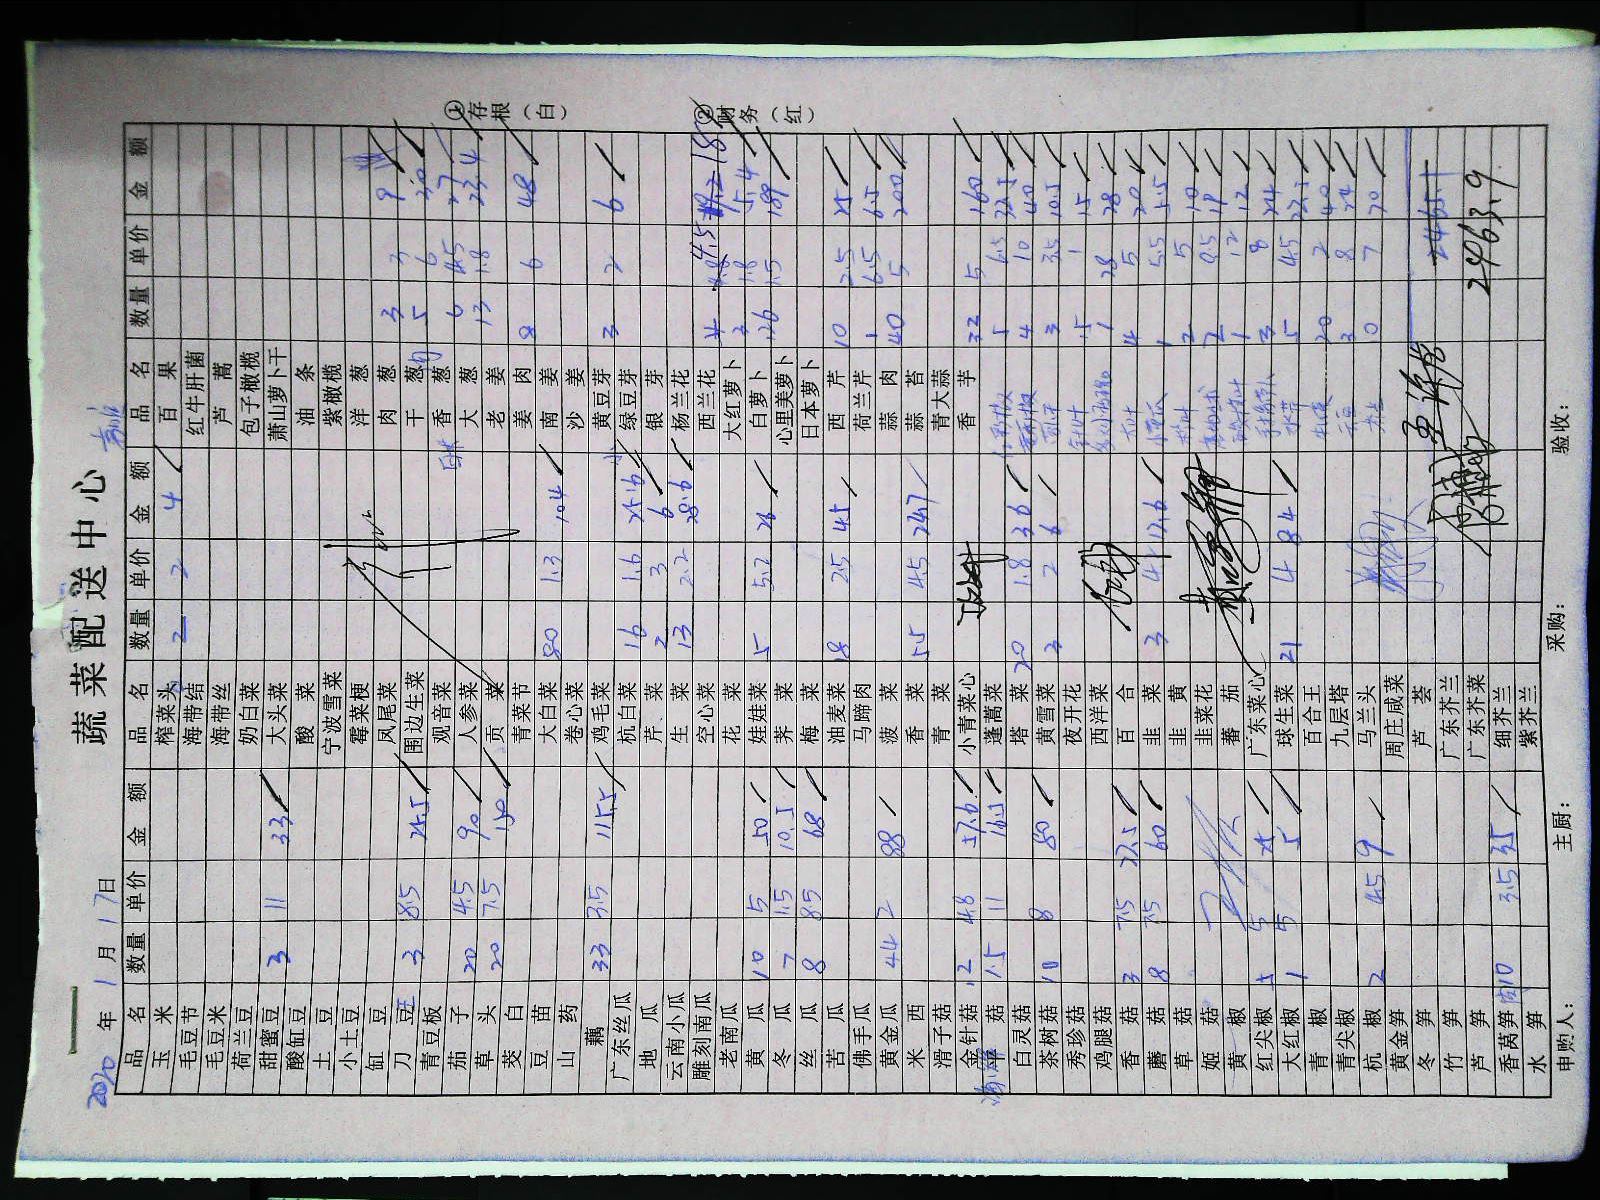 蔬菜配送中心
2020年1月17日
品名 数量 单价 金额
玉米
毛豆节
毛豆米
荷兰豆
甜蜜豆 3 11 33
酸缸豆
土豆
小土豆
缸豆
刀豆 3 8.5 25.5
青豆板
茄子 20 4.5 90
草头 20 7.5 150
茭白
豆苗
山药
藕 33 3.5 115.5
广东丝瓜
地瓜
云南小瓜
雕刻南瓜
老南瓜
黄瓜 10 5 50
冬瓜 7 1.5 10.5
丝瓜 8 8.5 68
苦瓜
佛手瓜
黄金瓜 44 2 88
米西
滑子菇
金针菇 12 4.8 57.6
菇 1.5 11 16.5
白灵菇
茶树菇 10 8 80
秀珍菇
鸡腿菇
香菇 3 7.5 22.5
蘑菇 8 7.5 60
草菇
姬菇
黄椒
红尖椒 5 5 25
大红椒 1 5 5
青椒
青尖椒
杭椒 2 4.5 9
黄金笋
冬笋
竹笋
芦笋
香莴笋 10 3.5 35
水笋
品名 数量 单价 金额
榨菜头 2 2 4
海带结
海带丝
奶白菜
大头菜
酸菜
宁波雪菜
霉菜梗
凤尾菜
围边生菜
观音菜
人参菜
贡菜
青菜节
大白菜 80 1.3 104
卷心菜
鸡毛菜
杭白菜 16 1.6 25.6
芹菜 2 3 6
生菜 13 2.2 28.6
空心菜
花菜
娃娃菜 5 5.2 26
荠菜
梅菜
油麦菜 18 2.5 45
马蹄肉
菠菜
香菜 55 4.5 247
青菜
小青菜心
蓬蒿菜
塔菜 20 1.8 36
黄雪菜 3 2 6
夜开花
西洋菜
百合
韭菜 3 4.2 12.6
韭黄
韭菜花
蕃茄
广东菜心
球生菜 21 4 84
百合王
九层塔
马兰头
周庄咸菜
芦荟
广东芥兰
广东芥菜
细芥兰
紫芥兰
品名 数量 单价 金额
百果
红牛肝菌
芦蒿
包子橄榄
萧山萝卜干
油条
紫橄榄
洋葱
肉葱 3 3 9
干葱 5 6 30
香葱 6 4.5 27
大葱 13 1.8 23.4
老姜
姜肉 8 6 48
南姜
沙姜
黄豆芽 3 2 6
绿豆芽
银芽
杨兰花
西兰花 4 4.5 18
大红萝卜 3 1.8 5.4
白萝卜 126 1.5 189
心里美萝卜
日本萝卜
西芹 10 2.5 25
荷兰芹 1 6.5 6.5
蒜肉 40 5 200
蒜苔
青大蒜
香芋 32 5 160
5 6.5 32.5
4 10 40
3 3.5 10.5
15 1 15
1 28 28
4 5 20
1 5.5 5.5
2 5 10
2 9.5 19
1 12 12
3 8 24
5 4.5 22.5
20 2 40
3 8 24
10 7 70
2465.1
2463.9
①存根（白）
②财务（红）
申购人： 主厨： 采购： 验收：